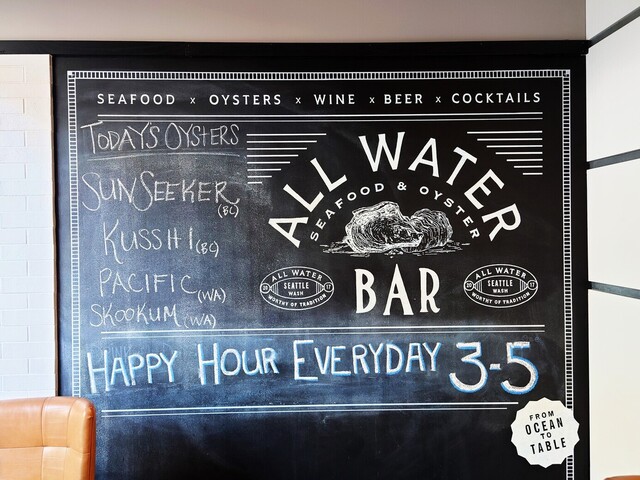 SEAFOOD x OYSTERS x WINE x BEER x COCKTAILS
TODAY'S OYSTERS
SUNSEEKER (BC)
KUSSHI (BC)
PACIFIC (WA)
SKOOKUM (WA)
ALL WATER
SEAFOOD & OYSTER
BAR
ALL WATER
20 SEATTLE 17
WASH
WORTHY OF TRADITION
ALL WATER
20 SEATTLE 17
WASH
WORTHY OF TRADITION
HAPPY HOUR EVERYDAY 3-5
FROM
OCEAN
TO
TABLE